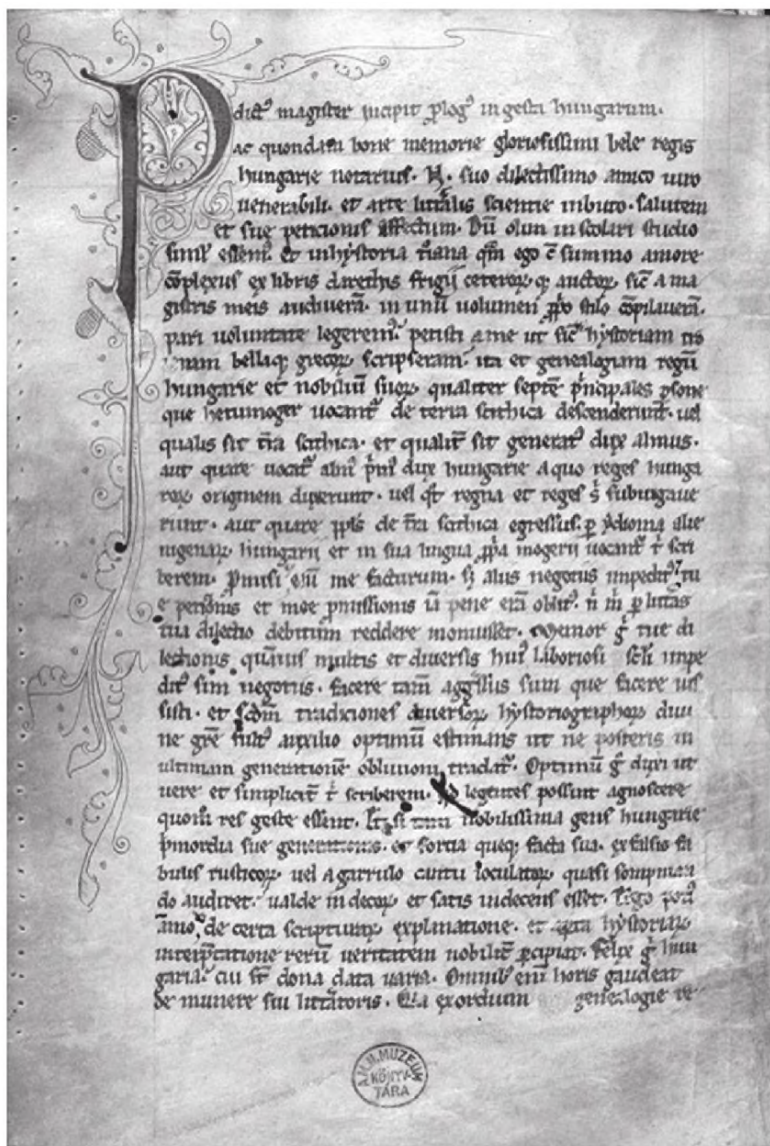 P dict᷒ magister incipit ꝓlog᷒ in gesta hungarum.
ac quondam bone memorie gloriosissimi bele regis
hungarie notarius. N. suo dilectissimo amico uiro
uenerabili. et arte litt̄alis scientie inbuto. salutem
et sue peticionis affectum. Dū olim in scolari studio
simł essem᷒. et in hystoria t̄iana qm̄ ego c̄ summo amore
cōplexus ex libris daretis frigii ceteroꝝ q; auctoꝝ. sic̄ a ma
gistris meis audiuerā. in unū uolumen ꝓprio stilo cōpilauerā.
pari uoluntate legerem᷒. petisti a me ut sic̄ hystoriam tro
ianam bellaq; grecoꝝ scripseram. ita et genealogiam regū
hungarie et nobiliū suoꝝ. qualiter septē p̄ncipales ꝑsone
que hetumoger uocant᷒ de terra scithica descenderūt. uel
qualis sit t̄ra scithica. et qualit̄ sit generat᷒ dux almus.
aut quare uocat᷒ alm᷒ p̄m᷒ dux hungarie a quo reges hunga
roꝝ originem duxerunt. uel qt̄ regna et reges s̄ subiugaue
runt. aut quare ppłs de t̄ra scithica egressus. ꝑ ydioma alie
nigenaꝝ hungarii et in sua lingua ꝓpa mogerii uocant᷒ t̄ scri
berem. Promisi eī me facturum. s; aliis negotiis impedit᷒. tu
e peticionis et mee ꝓmissionis iā pene erā oblit᷒. n̄ m̄ ꝑ litt̄as
tua dilectio debitum reddere monuisset. Memor ḡ tue di
lectionis. quāuis multis et diuersis hui᷒ laboriosi sc̄li impe
dit᷒ sim negotiis. facere tam̄ aggressus sum que facere ius
sisti. et scd̄m traditiones diuersoꝝ hystoriographoꝝ diui
ne gr̄e fult᷒ auxilio optimū estimans ut ne posteris in
ultimam generationē obliuioni tradat᷒. Optimū ḡ duxi ut
uere et simplicit̄ t̄ scriberem. legentes possint agnoscere
quom̄ res geste essent. Et si tam nobilissima gens hungarie
p̄mordia sue generationis. et fortia queq; facta sua. ex falsis fa
bulis rusticoꝝ. uel a garrulo cantu ioculatoꝝ quasi sompnian
do audiret. ualde indecoꝝ et satis indecens esset. Ergo poti᷒
āmo de certa scripturaꝝ explanatione. et aperta hystoriaꝝ
interp̄tatione rerū ueritatem nobilit̄ ꝑcipiat. Felix ḡ hun
garia. cui s̄t dona data uaria. Omnib᷒ enī horis gaudeat
de munere sui litt̄atoris. Quia exordium genealogie re
A M. N. MUZEUM
KÖNYV
TÁRA